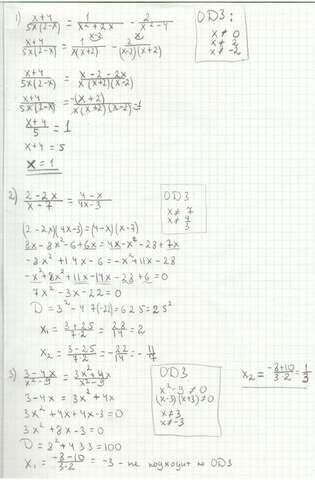 1) \frac{x+4}{5x(2-x)} = \frac{1}{x^2+2x} - \frac{2}{x^2-4}
ОДЗ:
x ≠ 0
x ≠ 2
x ≠ -2
\frac{x+4}{5x(2-x)} = \frac{1}{x(x+2)} - \frac{2}{(x-2)(x+2)}
\frac{x+4}{5x(2-x)} = \frac{x-2-2x}{x(x+2)(x-2)}
\frac{x+4}{5x(2-x)} = \frac{-(x+2)}{x(x+2)(x-2)}
\frac{x+4}{5} = 1
x+4=5
x=1
2) \frac{2-2x}{x-7} = \frac{4-x}{4x-3}
ОДЗ
x ≠ 7
(2-2x)(4x-3)=(4-x)(x-7)
8x-8x^2-6+6x=4x-x^2-28+7x
-8x^2+14x-6=-x^2+11x-28
-x^2+8x^2+11x-14x-28+6=0
7x^2-3x-22=0
D=3^2-4·7(-22)=625=25^2
x_1=\frac{3+25}{7·2}=\frac{28}{14}=2
x_2=\frac{3-25}{7·2}=-\frac{22}{14}=-\frac{11}{7}
3) \frac{3-4x}{x^2-9}=\frac{3x^2+4x}{x^2-9}
ОДЗ
x^2-9≠0
(x-3)(x+3)≠0
x≠3
x≠-3
3-4x=3x^2+4x
3x^2+4x+4x-3=0
3x^2+8x-3=0
D=8^2+4·3·3=100
x_1=\frac{-8-10}{3·2}=-3 - не подходит по ОДЗ
x_2=\frac{-8+10}{3·2}=\frac{1}{3}